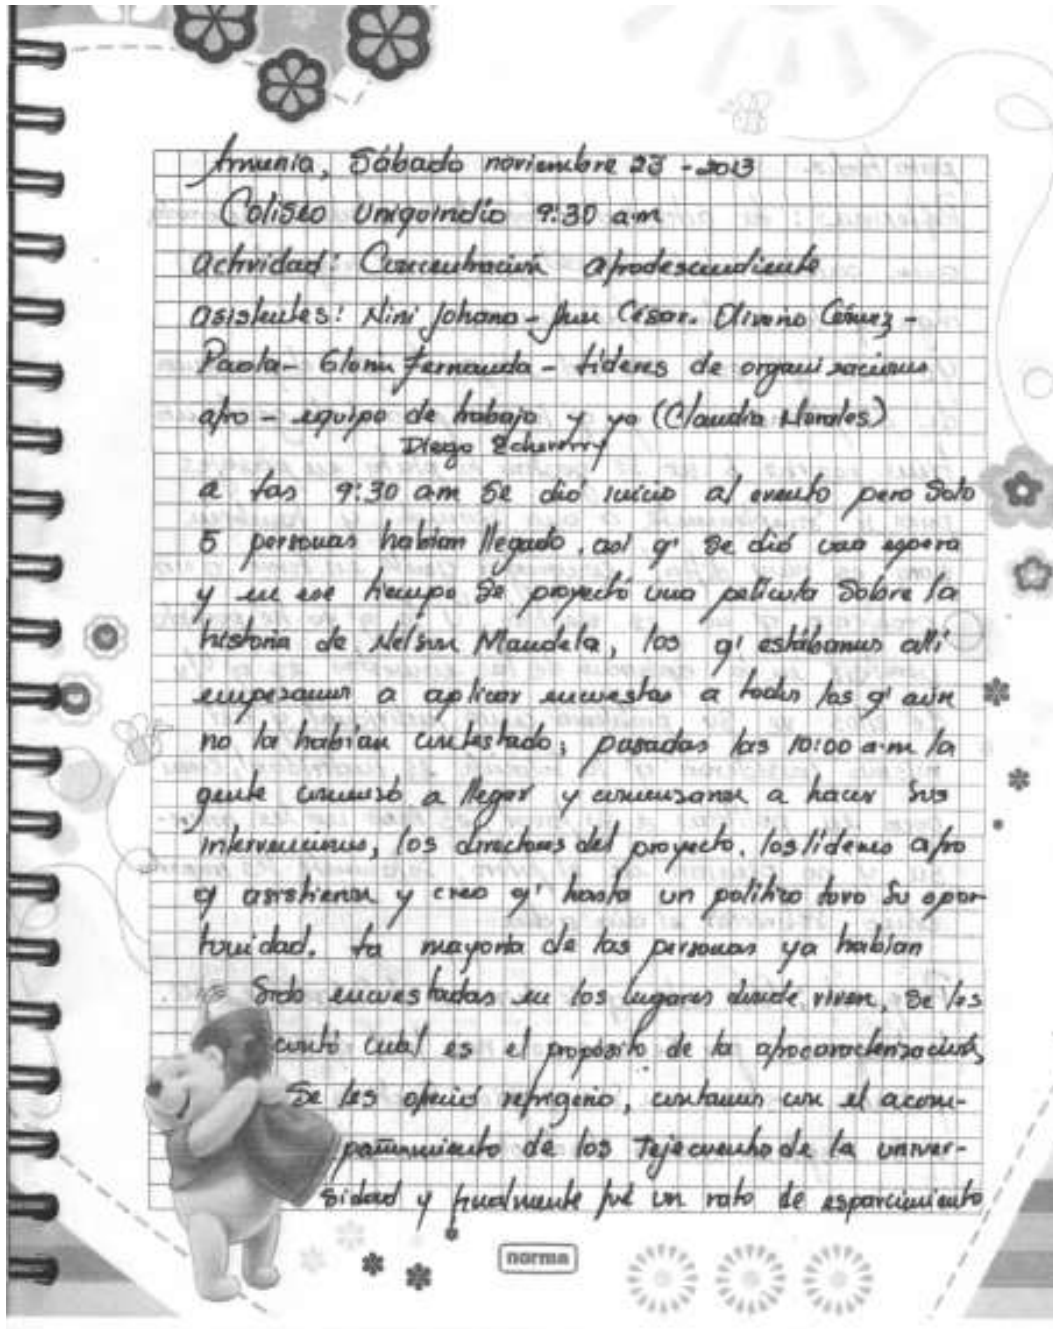 Armenia, Sábado noviembre 23 - 2013
Coliseo Uniquindío 9:30 a.m
actividad: Concentración afrodescendiente
asistentes: Nini Johana - Julio César. Oliverio Gómez -
Paola - Gloria Fernanda - Líderes de organizaciones
afro - equipo de trabajo y yo (Claudia Morales)
Diego Echeverry
a las 9:30 am se dió inicio al evento pero solo
5 personas habían llegado, así q' se dió una espera
y en ese tiempo se proyectó una película sobre la
historia de Nelson Mandela, los q' estábamos allí
empezamos a aplicar encuestas a todos los q' aún
no la habían contestado; pasadas las 10:00 a.m la
gente comenzó a llegar y comenzaron a hacer sus
intervenciones, los directores del proyecto, los líderes afro
q' asistieron y creo q' hasta un político tuvo su opor-
tunidad. La mayoría de las personas ya habían
sido encuestadas en los lugares donde viven, se les
contó cual es el propósito de la afrocaracterización,
se les ofreció refrigerio, contamos con el acom-
pañamiento de los Tejecuento de la univer-
sidad y finalmente fué un rato de esparcimiento
norma